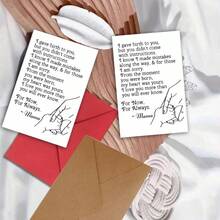 I gave birth to you,
but you didn't come
with instructions.
I know I made mistakes
along the way, & for those
I am sorry.
From the moment
you were born,
my heart was yours.
I love you more than
you will ever know.
For Now.
For Always.
~Mama
I gave birth to you,
but you didn't come
with instructions.
I know I made mistakes
along the way, & for those
I am sorry.
From the moment
you were born,
my heart was yours.
I love you more than
you will ever know.
For Now.
For Always.
~Mama